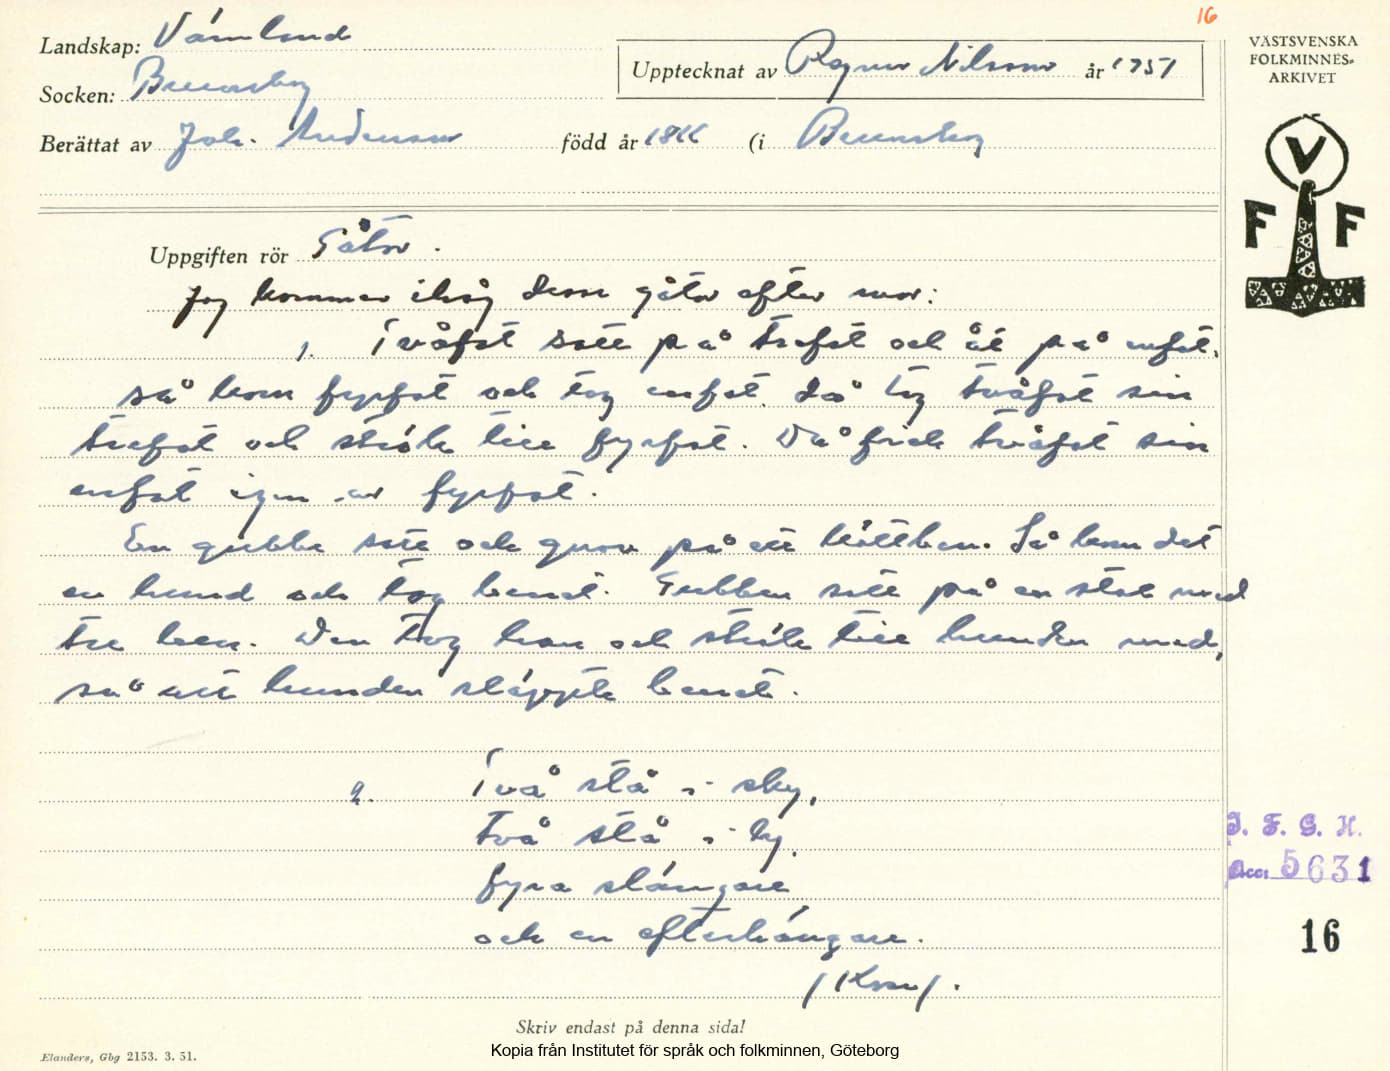 16
Landskap: Värmland
Socken: Brunskog
Upptecknat av Ragnar Nilsson år 1951
Berättat av Joh. Andersson född år 1866 (i Brunskog
VÄSTSVENSKA
FOLKMINNES-
ARKIVET
V
F F
Uppgiften rör Gåtor.
Jag kommer ihåg dessa gåtor efter mor:
1. Tvåfot satt på trefot och åt på enfot,
så kom fyrfot och tog enfot. då tog tvåfot sin
trefot och slog till fyrfot. Då fick tvåfot sin
enfot igen av fyrfot.
En gubbe satt och gnov på ett köttben. Så kom det
en hund och tog benet. Gubben satt på en stol med
tre ben. Den tog han och slog till hunden med,
så att hunden släppte benet.
2. Två stå i sky,
två stå i ty,
fyra slängare
och en efterhängare.
/Kon/.
I. F. G. H.
Acc: 5631
16
Skriv endast på denna sida!
Elanders, Gbg 2153. 3. 51.
Kopia från Institutet för språk och folkminnen, Göteborg